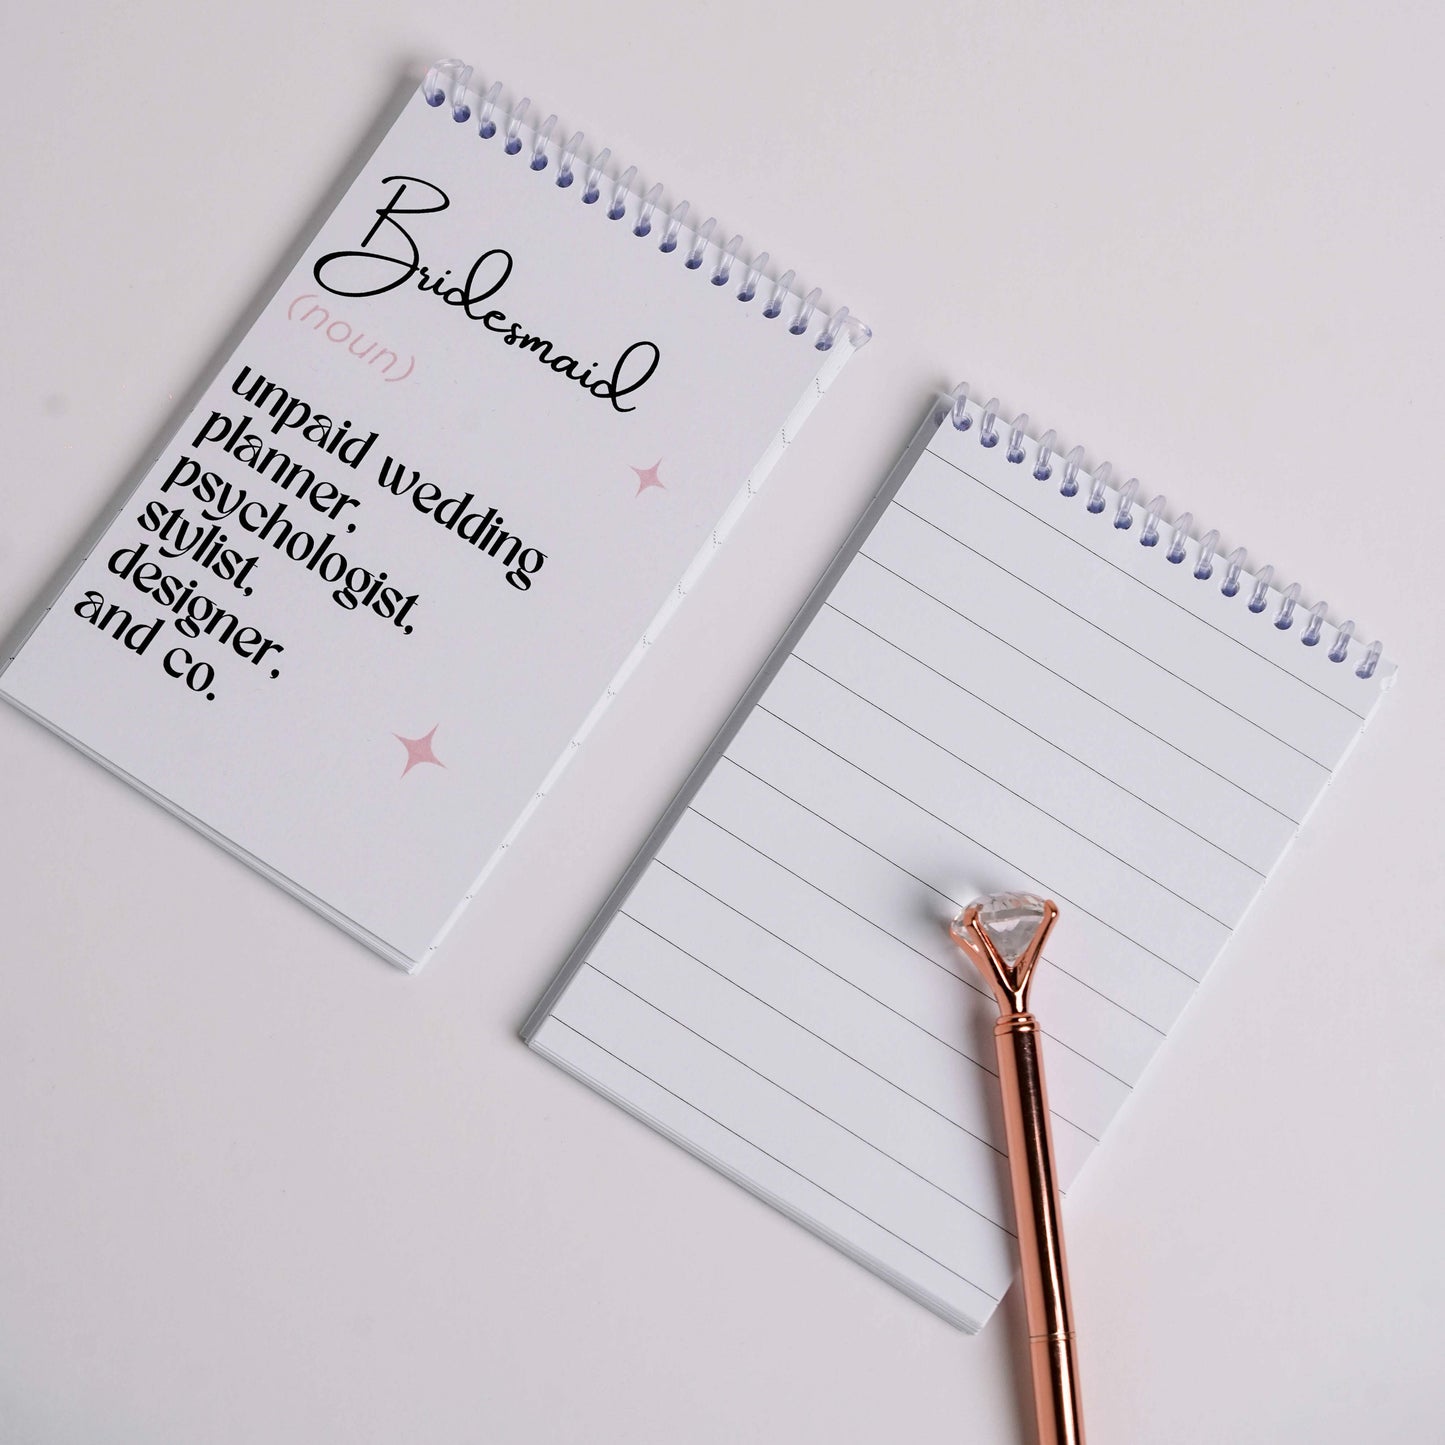 Bridesmaid
(noun)
unpaid wedding
planner,
psychologist,
stylist,
designer,
and co.